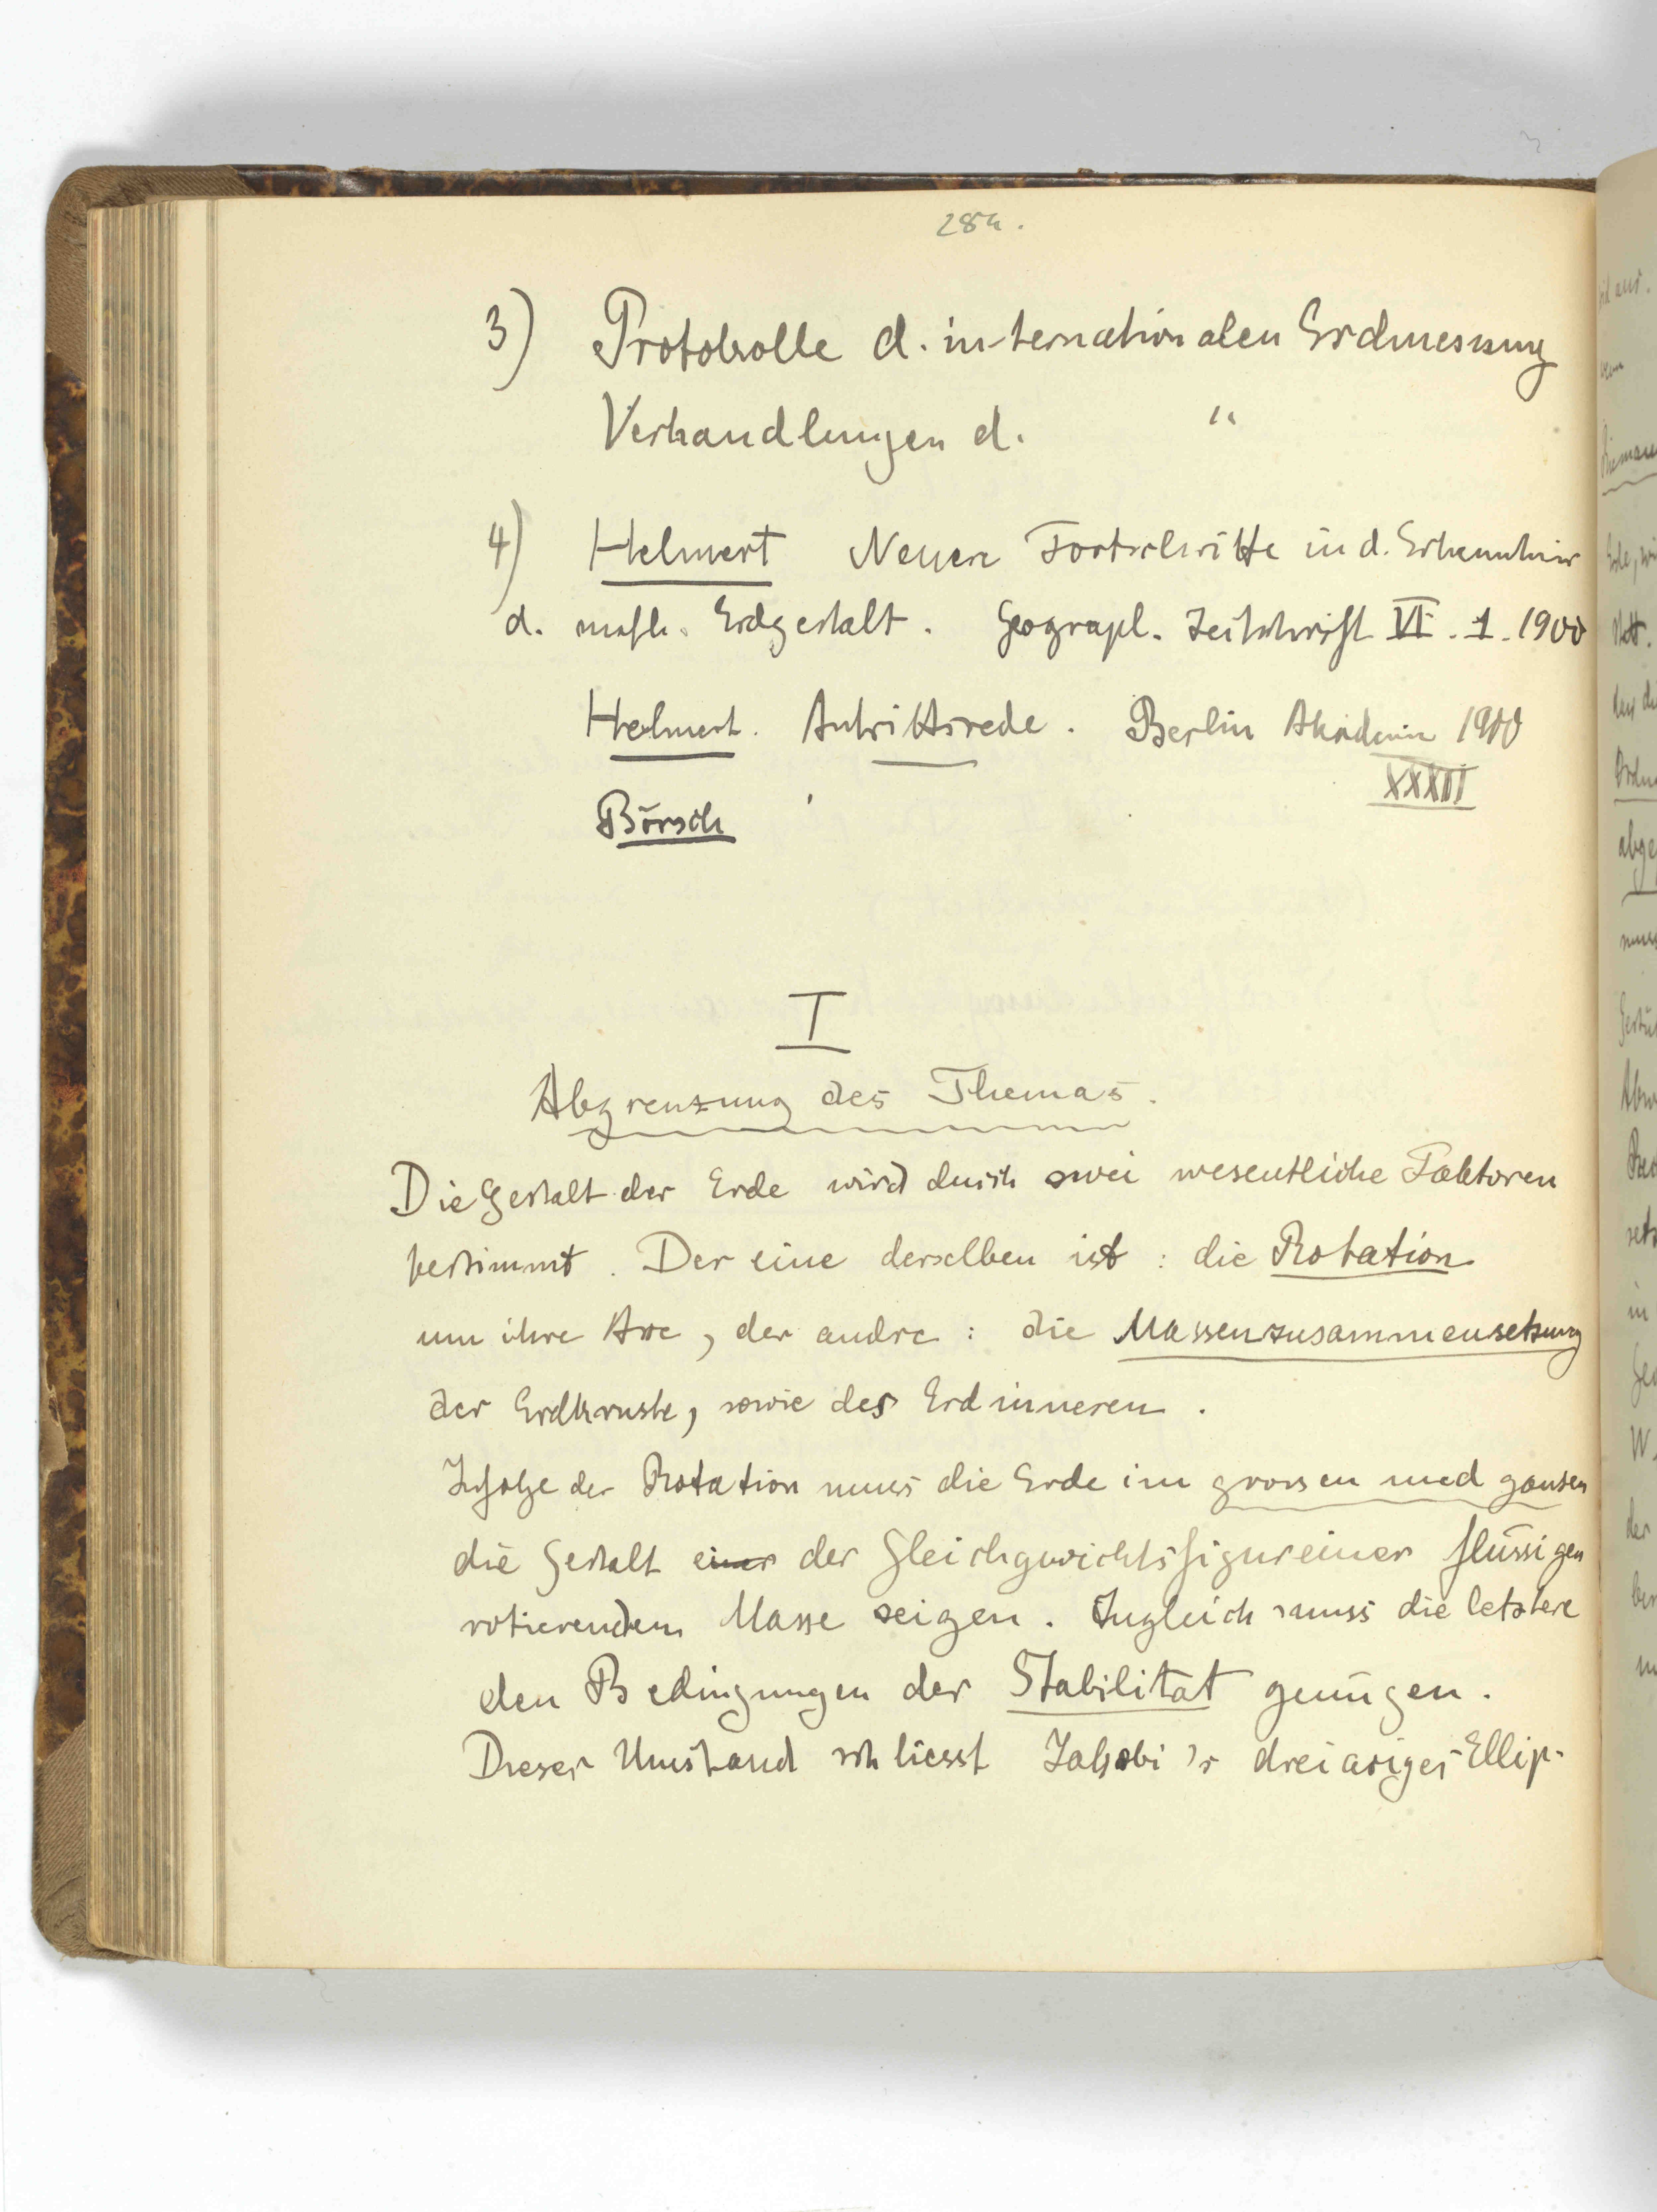 284.
3) Protokolle d. internationalen Erdmessung
Verhandlungen d. "
4) Helmert Neuere Fortschritte in d. Erkenntnis
d. math. Erdgestalt. Geograph. Zeitschrift VI. 1. 1900
Helmert. Antrittsrede. Berlin Akademie 1900
XXXII
Börsch
I
Abgrenzung des Themas.
Die Gestalt der Erde wird durch zwei wesentliche Faktoren
bestimmt. Der eine derselben ist: die Rotation
um ihre Axe, der andre: die Massenzusammensetzung
der Erdkruste, sowie des Erdinneren.
Infolge der Rotation muss die Erde im grossen und ganzen
die Gestalt einer der Gleichgewichtsfigur einer flüssigen
rotierenden Masse zeigen. Zugleich muss die letztere
den Bedingungen der Stabilität genügen.
Dieser Umstand schliesst Jakobi's dreiaxiges Ellip-